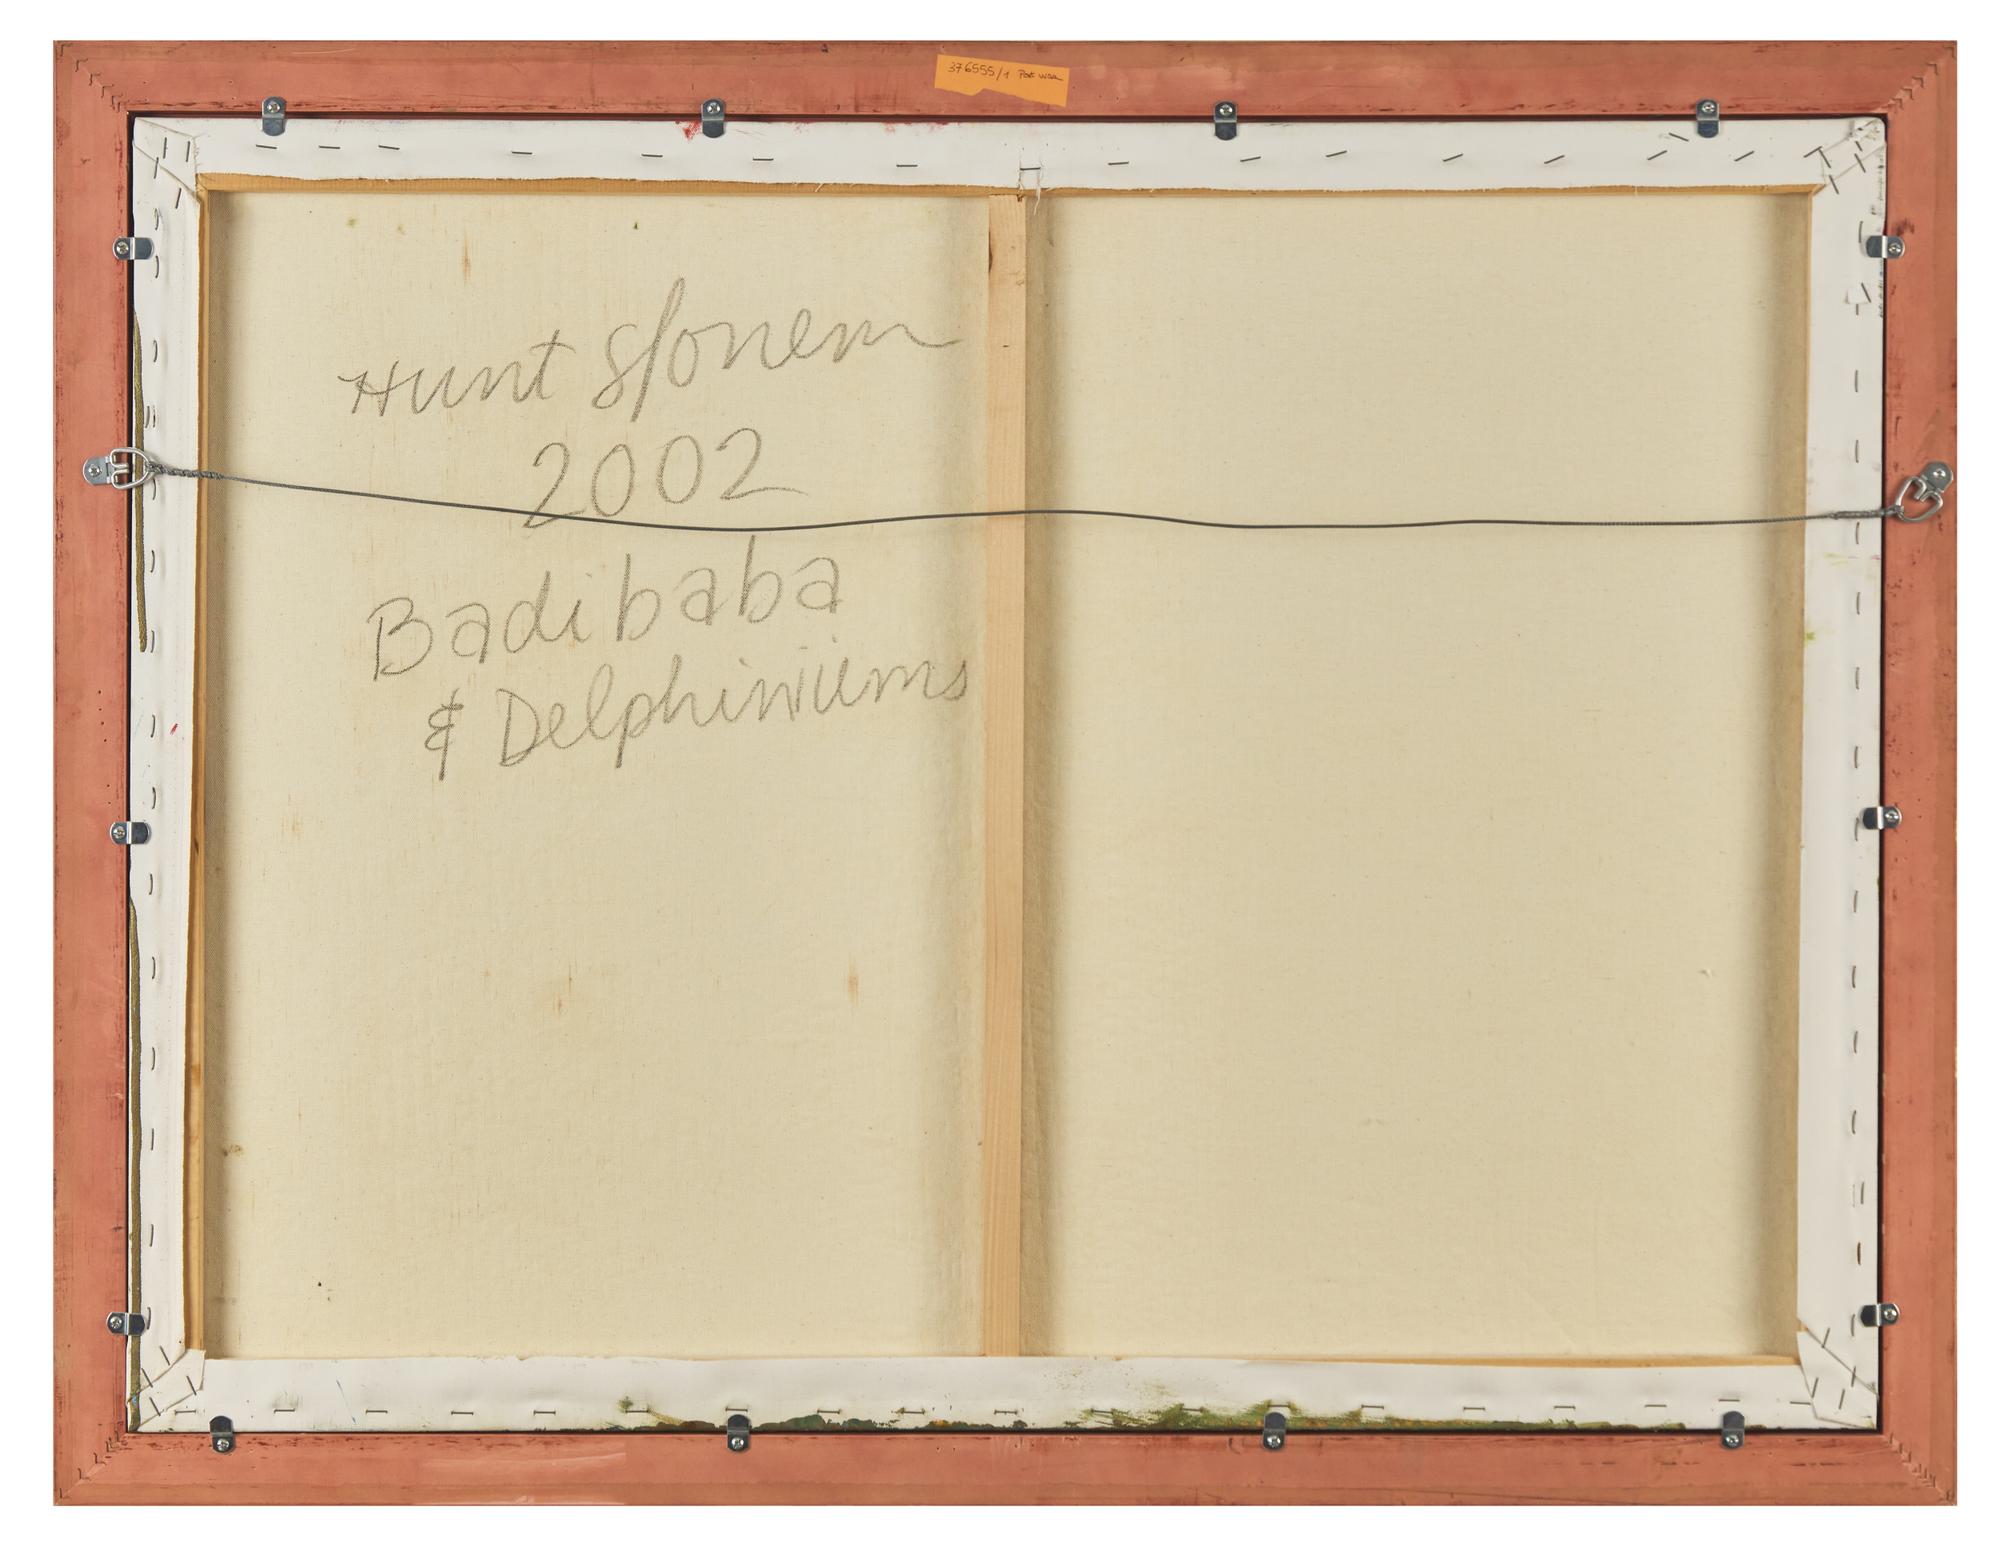 376555/1 Post war
Hunt Slonem
2002
Badibaba
& Delphiniums